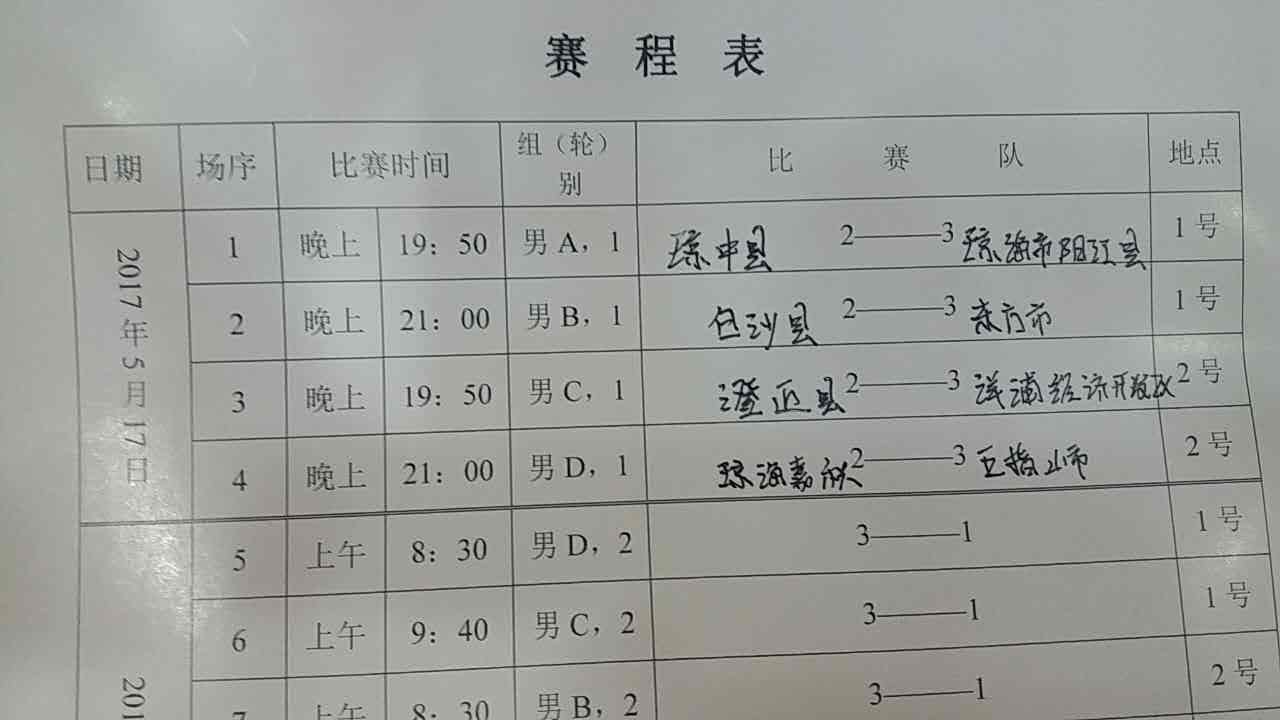 赛 程 表
日期 场序 比赛时间 组（轮）别 比 赛 队 地点
2017年5月17日
1 晚上 19：50 男A，1 琼中县 2——3 琼海市阳江县 1号
2 晚上 21：00 男B，1 白沙县 2——3 东方市 1号
3 晚上 19：50 男C，1 澄迈县 2——3 洋浦经济开发区 2号
4 晚上 21：00 男D，1 琼海嘉积 2——3 五指山市 2号
5 上午 8：30 男D，2 3——1 1号
6 上午 9：40 男C，2 3——1 1号
7 上午 8：30 男B，2 3——1 2号
201